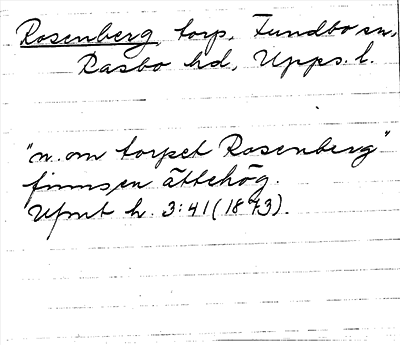 Rosenberg, torp, Fundbo sn,
Rasbo hd, Upps. l.
"n. om torpet Rosenberg"
finns en ättehög.
Ufmt h. 3:41 (1873).